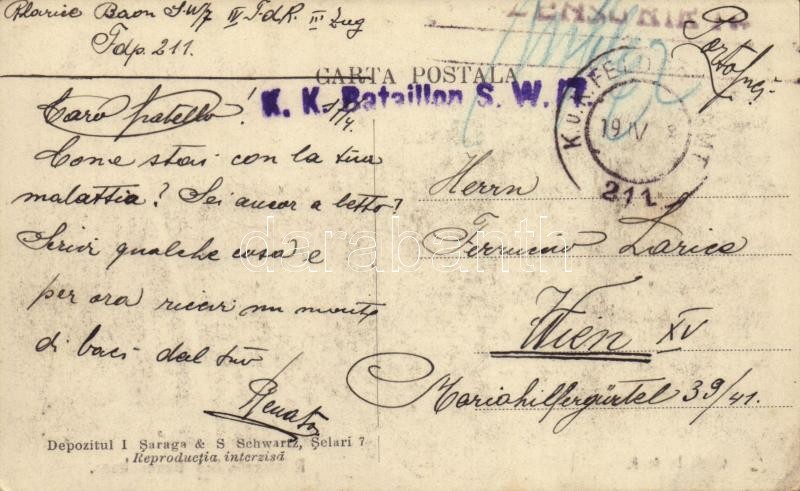 Baon S.W/7 IV F.d.R. III Zug
Fdp. 211.
ZENSURIERT
Portofrei
CARTA POSTALA
K. K. Bataillon S. W. /7
K.u.K. FELDPOSTAMT
19 IV
211
Caro fratello!
Come stai con la tua
malattia? Sei ancor a letto?
Scrivi qualche cosa e
per ora ricevi un monte
di baci dal tuo
Renato
Herrn
Ferruccio Larice
Wien XV
Mariahilfergürtel 39/41.
Depozitul I Șaraga & S Schwartz, Șelari 7
Reproducția interzisă
darabanth